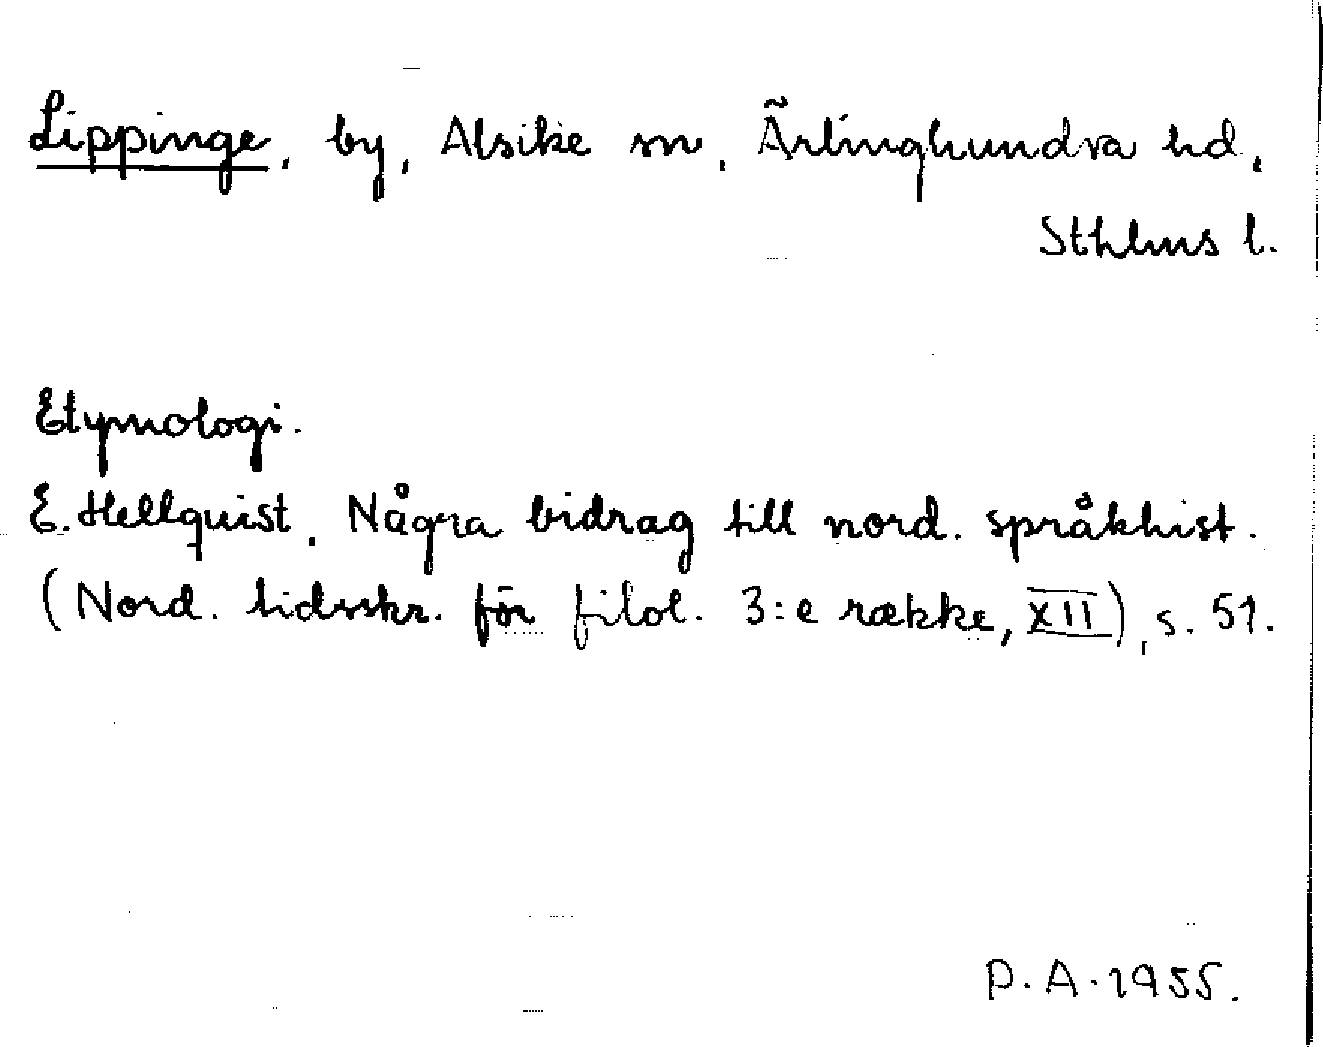 Lippinge, by, Alsike sn, Ärlinghundra hd,
Sthlms l.
Etymologi.
E. Hellquist, Några bidrag till nord. språkhist.
(Nord. tidsskr. för filol. 3:e række, XII), s. 51.
P.A. 1955.